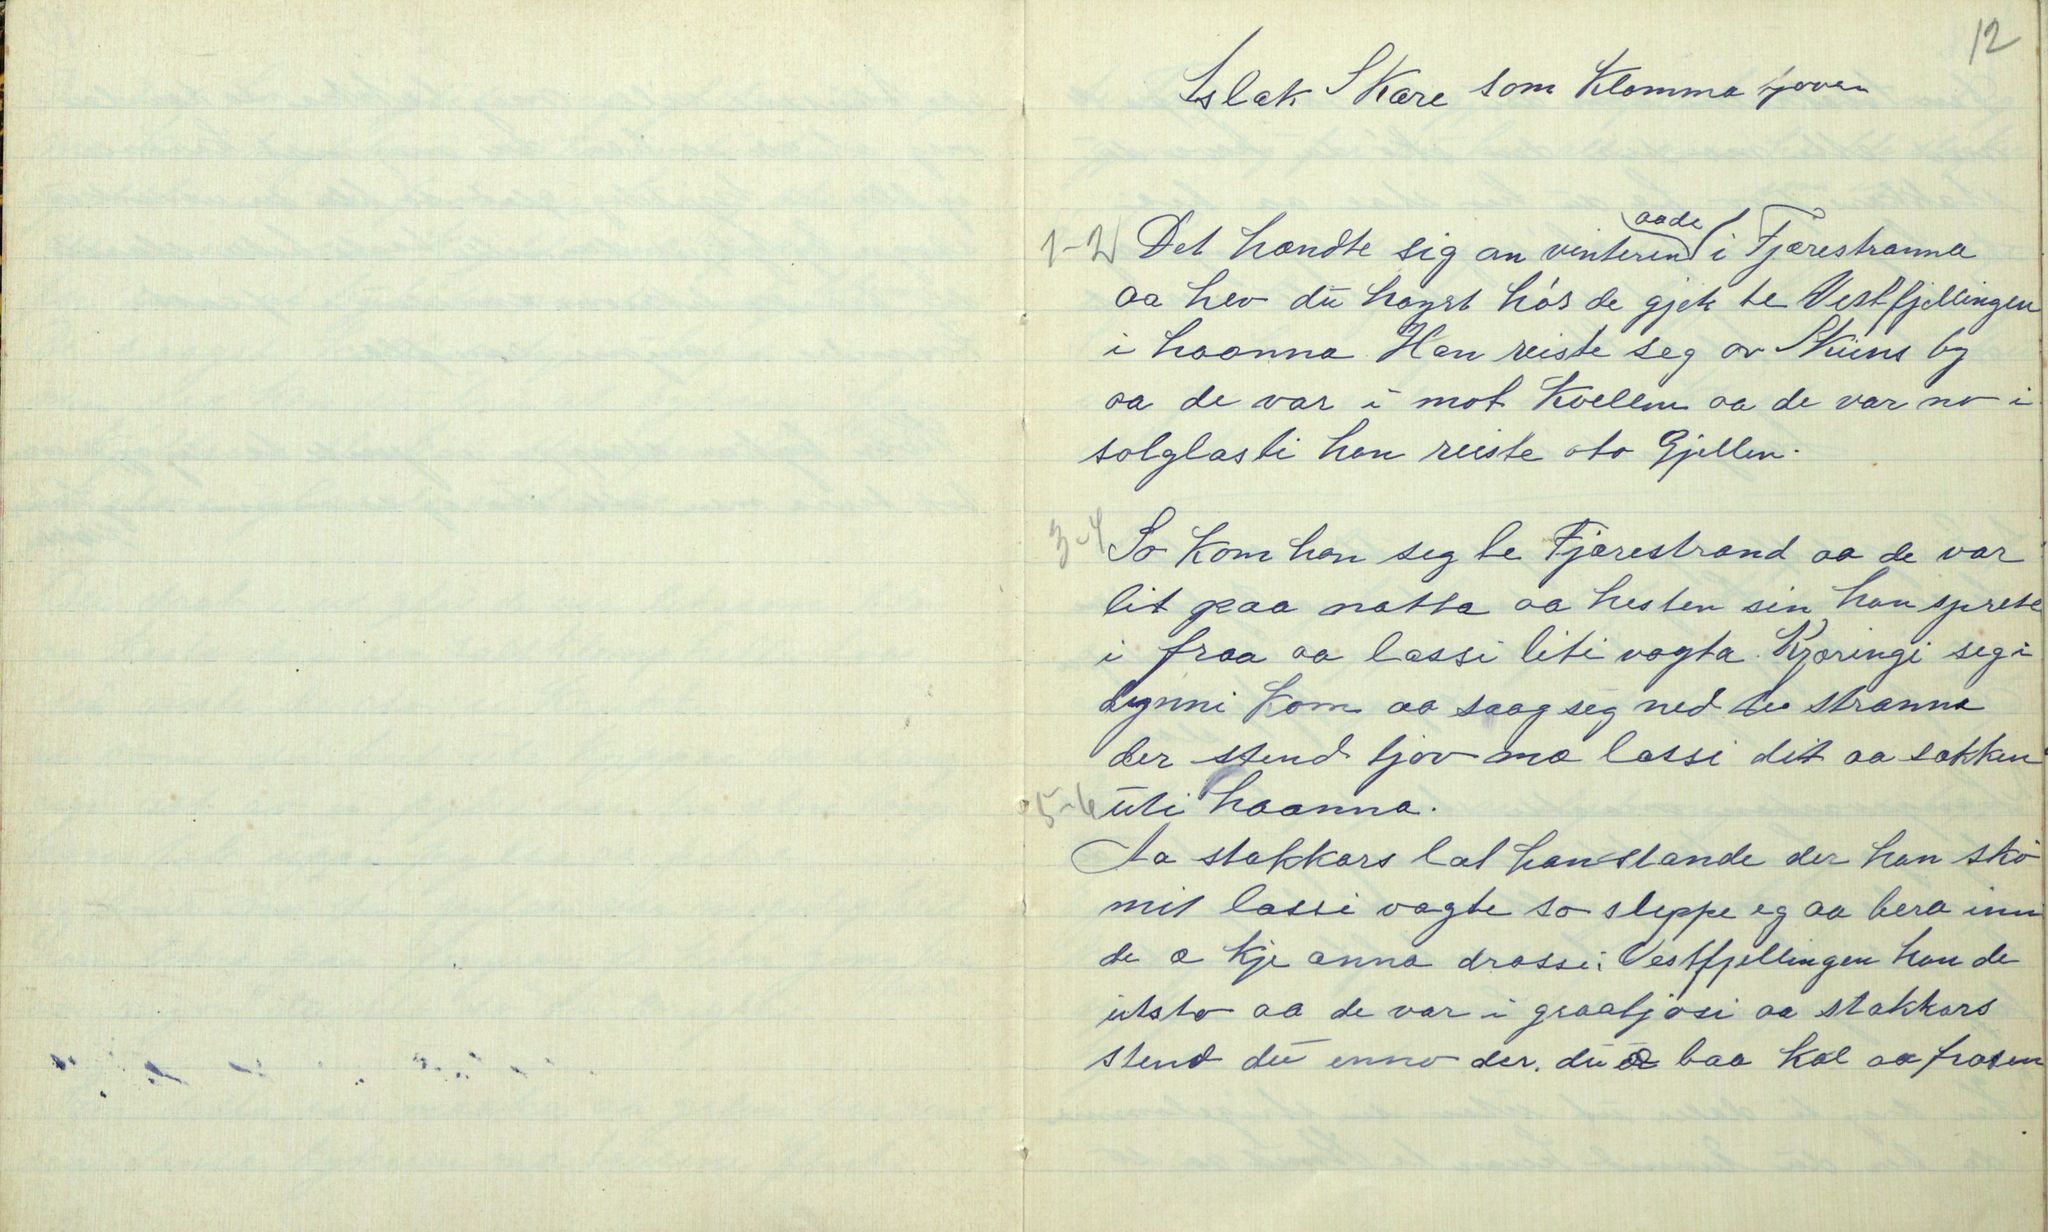 12
Aslak Skare som Klomma tjoven
1-2 Det hændte sig an vinteren aade i Fjærestranna
aa hev du høyrt hós de gjek te Vestfjellingen
i haanna Han reiste seg av Skiens by
aa de var i mot Kvellen aa de var no i
solglasti han reiste oto Gjellen.
3-4 So kom han seg te Fjærestrand aa de var
lit paa natta aa hesten sin han sprete
i fraa aa lassi liti vogta. Kjæringi seg i
dynni kom aa saag seg ned te stranna
der stend tjov mæ lassi dit aa sekken
5-6 uti haanna.
Aa stakkars lat han stande der han sko
mit lassi vagte so sleppe eg aa bera inn
de æ kje anna drassi. Vestfjellingen han de
utsto aa de var i graaljosi aa stakkars
stend du enno der. du æ baa kal aa frosen